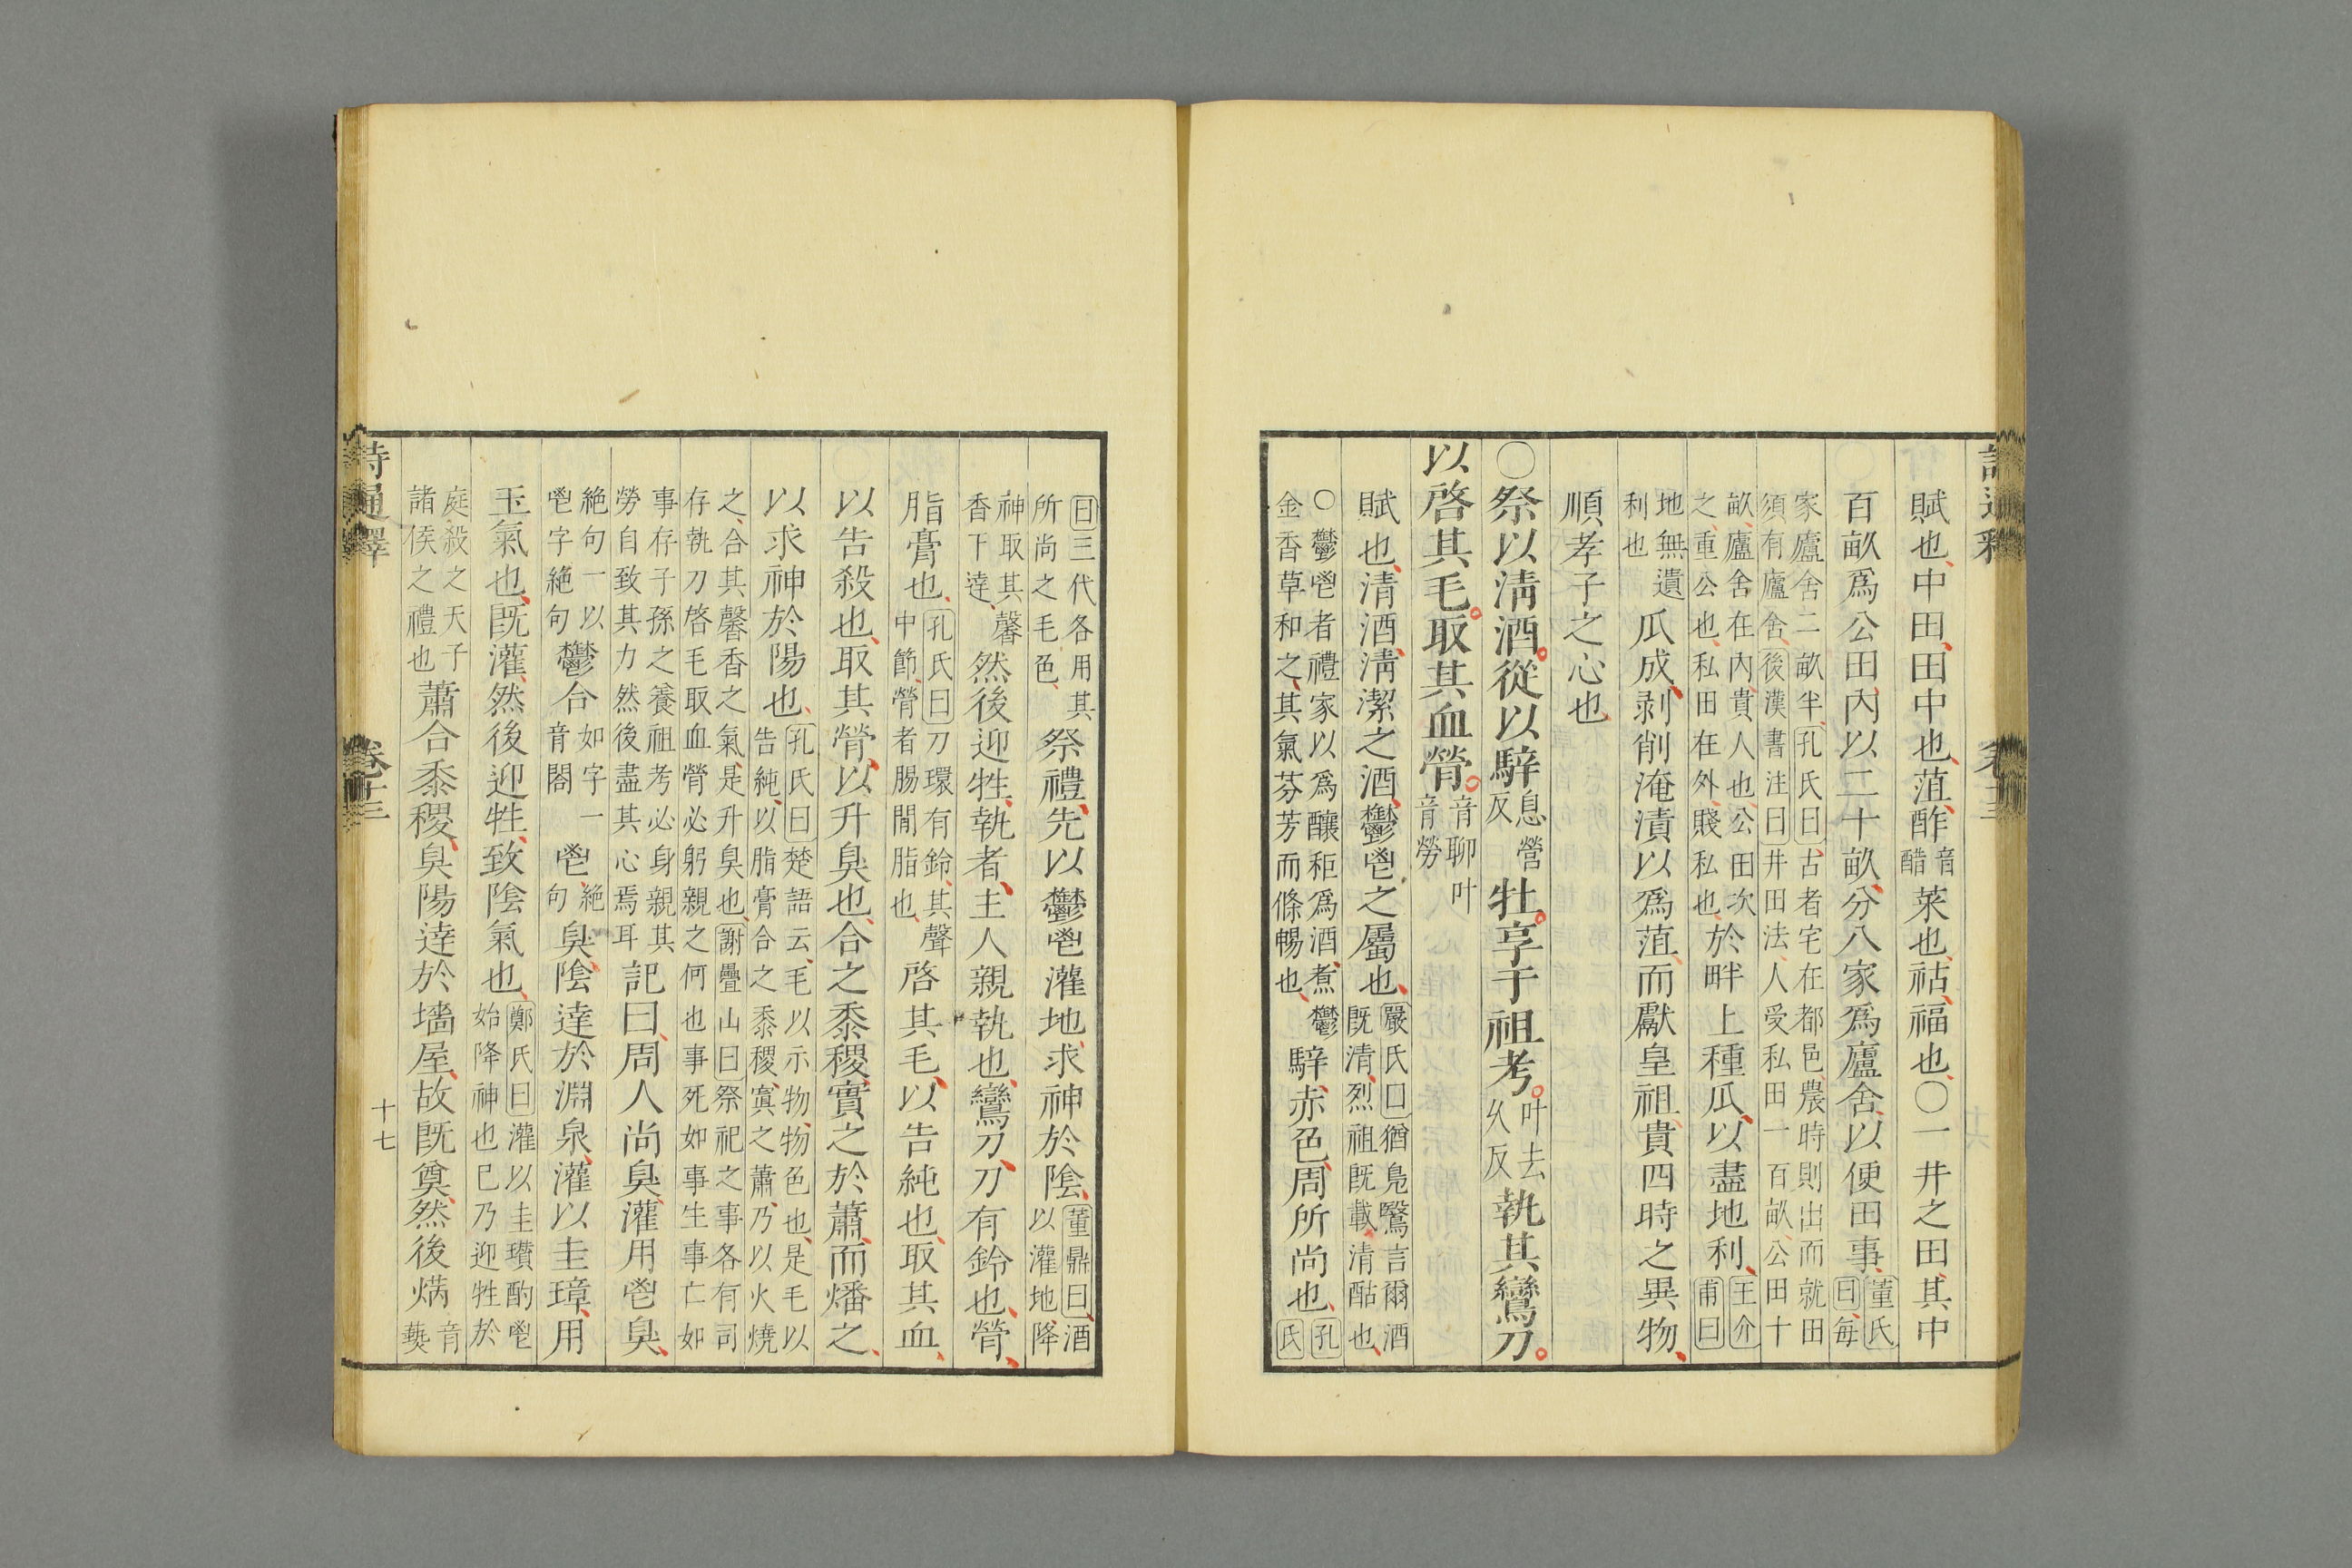 賦也、中田、田中也、菹、酢音醋菜也、祜、福也、〇一井之田、其中
百畝爲公田、内以二十畝、分八家爲廬舍、以便田事、董氏曰、每
家廬舍二畝半、孔氏曰、古者宅在都邑、農時則出而就田
須有廬舍、後漢書注曰井田法、人受私田一百畝、公田十
畝、廬舍在内、貴人也、公田次之、重公也、私田在外、賤私也、於畔上種瓜、以盡地利、王介甫曰
地無遺利也瓜成、剥削淹漬以爲菹、而獻皇祖、貴四時之異物、
順孝子之心也、
〇祭以清酒。從以騂息營反牡。享于祖考。叶去久反執其鸞刀。
以啓其毛。取其血膋。音聊叶音勞
賦也、清酒、清潔之酒、鬱鬯之屬也、嚴氏曰猶鳧鷖言爾酒既清、烈祖既載清酤也、
〇鬱鬯者禮家以爲釀秬爲酒、煮鬱金香草和之、其氣芬芳而條暢也、騂、赤色、周所尚也、孔氏
曰三代各用其所尚之毛色、祭禮、先以鬱鬯灌地、求神於陰、董鼎曰、酒以灌地、降
神取其馨香下達、然後迎牲、執者、主人親執也、鸞刀、刀有鈴也、膋、
脂膏也、孔氏曰刀環有鈴、其聲中節、膋者腸閒脂也、啓其毛、以告純也、取其血、
以告殺也、取其膋、以升臭也、合之黍稷、實之於蕭、而燔之、
以求神於陽也、孔氏曰楚語云、毛以示物、物色也、是毛以告純、以脂膏合之黍稷、寘之蕭、乃以火燒
之、合其馨香之氣、是升臭也、謝疊山曰祭祀之事各有司存執刀啓毛取血膋必躬親之何也事死如事生事亡如
事存子孫之養祖考必身親其勞自致其力然後盡其心焉耳記曰、周人尚臭、灌用鬯臭、
絶句一以鬯字絶句鬱合如字一音閤鬯、絶句臭、陰達於淵泉、灌以圭璋、用
玉氣也、既灌、然後迎牲、致陰氣也、鄭氏曰灌以圭瓚酌鬯始降神也已乃迎牲於
庭殺之天子諸侯之禮也蕭合黍稷、臭陽達於墻屋、故既奠、然後焫音爇
詩通釋 卷十三 十七